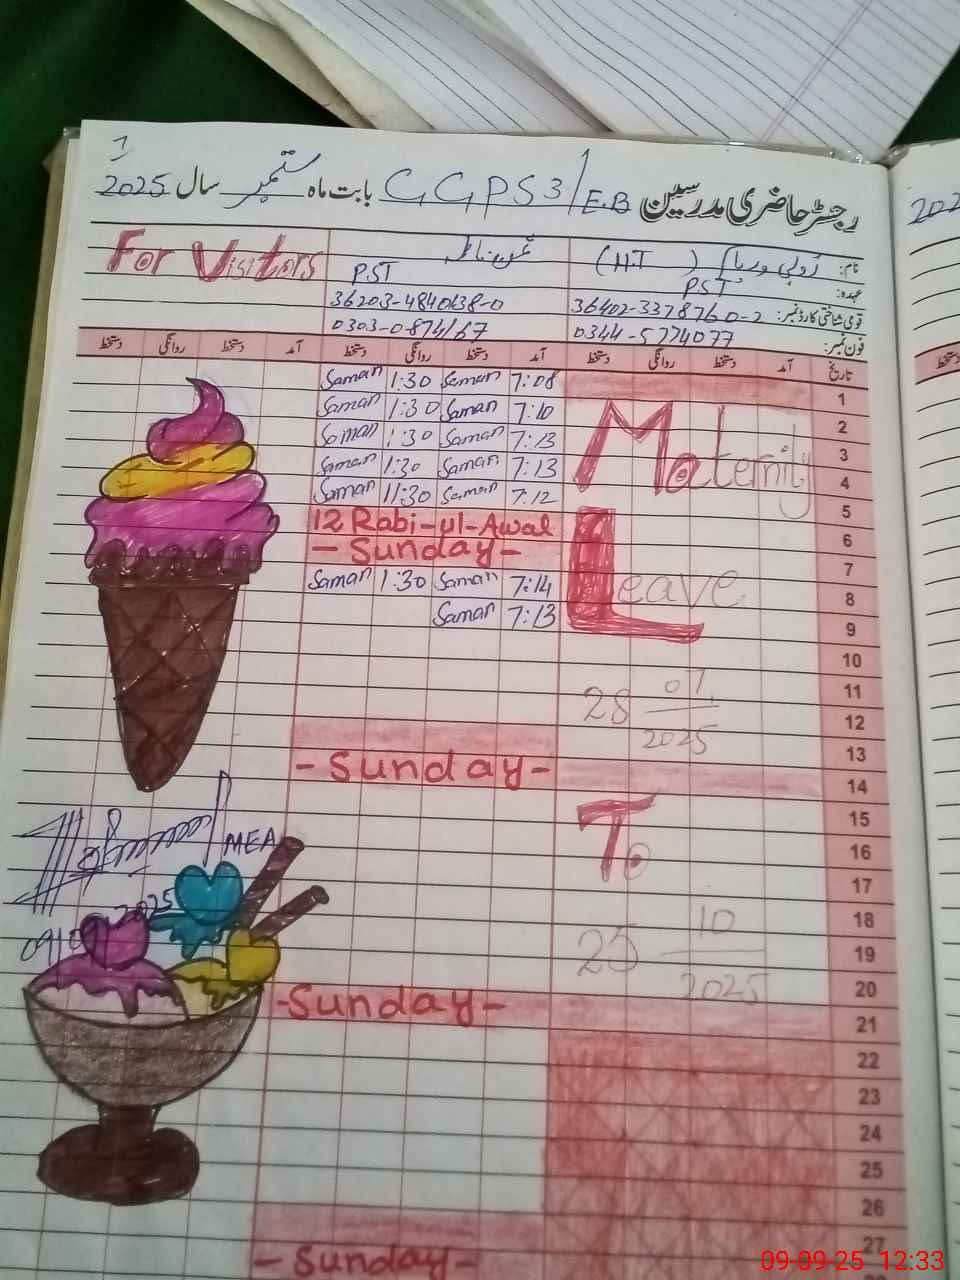 1
رجسٹر حاضری مدرسین GGPS 3/E.B بابت ماہ ستمبر سال 2025
For Visitors
نام: (HT)
عہدہ: PST PST
قومی شناختی کارڈ نمبر: 36402-3378760-2 36203-4840638-0
فون نمبر: 0344-5774077 0303-0874167
تاریخ آمد دستخط روانگی دستخط آمد دستخط روانگی دستخط آمد دستخط روانگی دستخط
Saman 1:30 Saman 7:08 1
Saman 1:30 Saman 7:10 2
Saman 1:30 Saman 7:13 3
Saman 1:30 Saman 7:13 4
Saman 11:30 Saman 7:12 5
12 Rabi-ul-Awal 6
- Sunday - 7
Saman 1:30 Saman 7:14 8
Saman 7:13 9
Maternity
Leave
10
11
28 07/2025
12
13
- Sunday - 14
15
To
16
MEA
17
18
09/09/2025
25 10/2025
19
20
- Sunday - 21
22
23
24
25
26
27
- Sunday -
202
دستخط
09-09-25 12:33